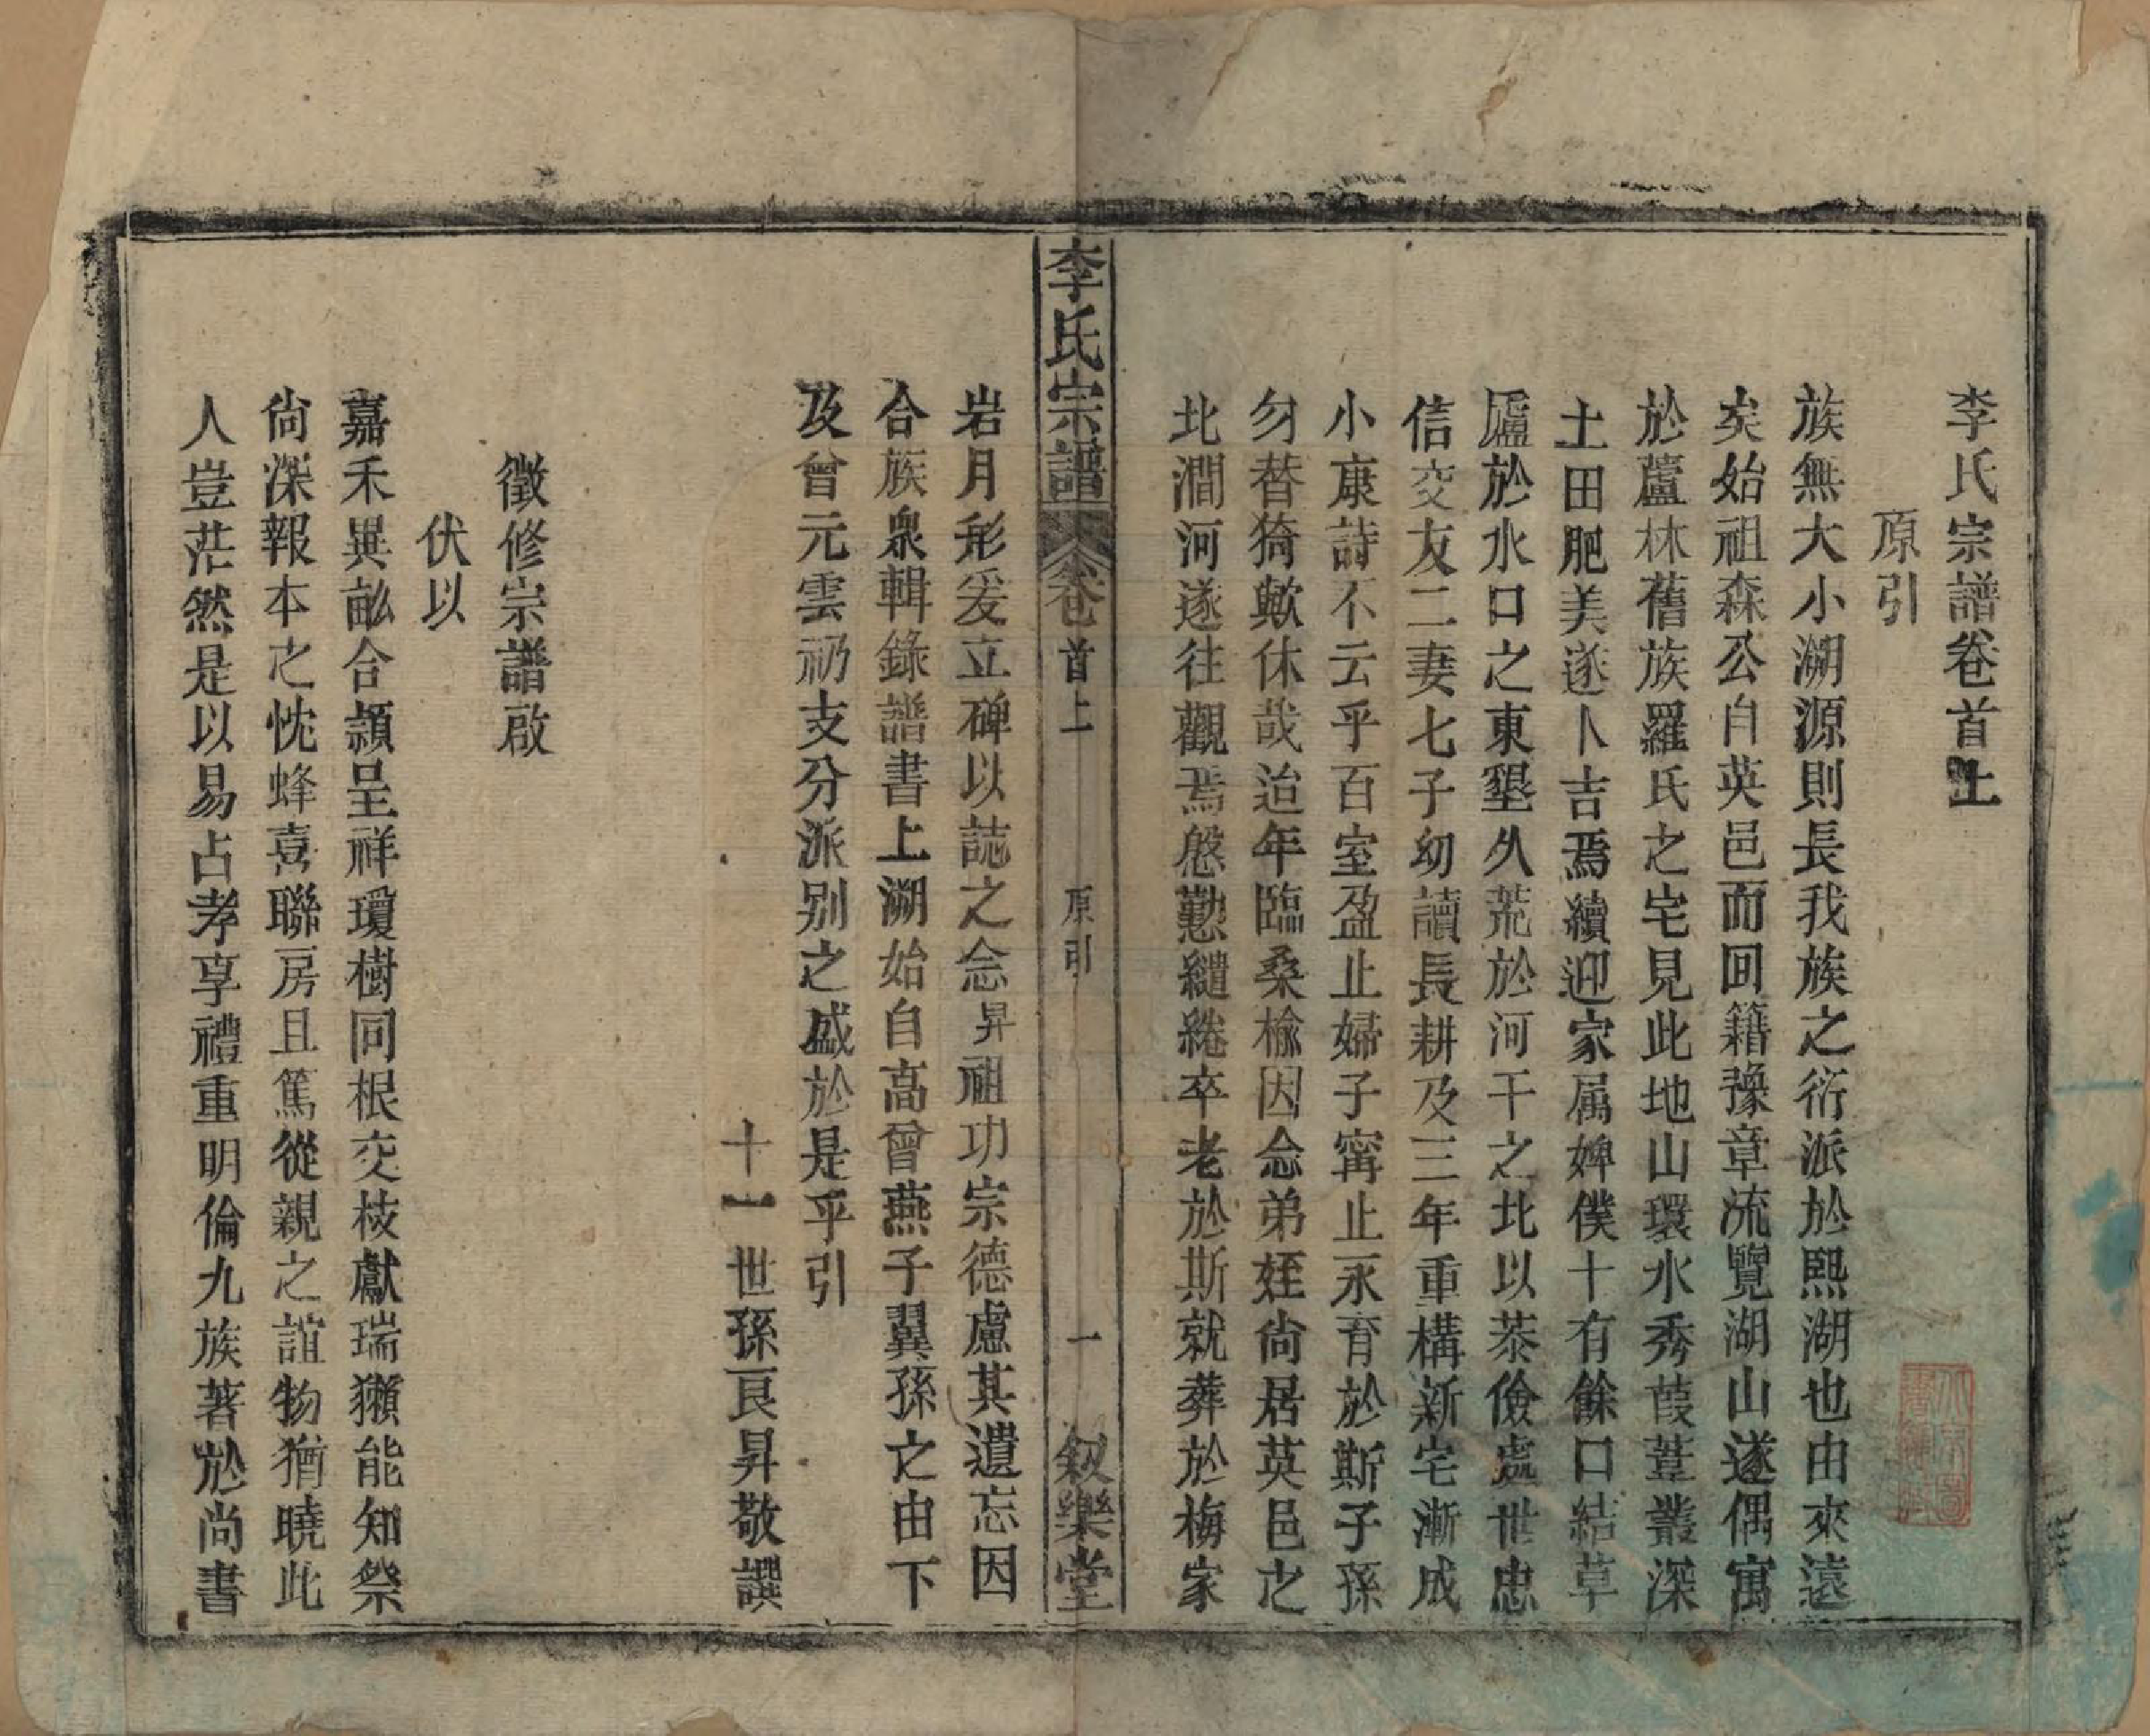 李氏宗譜卷首上
原引
族無大小溯源則長我族之衍派於熙湖也由來遠
矣始祖森公自英邑而回籍豫章流覽湖山遂偶寓
於蘆林舊族羅氏之宅見此地山環水秀葭葦叢深
土田肥美遂卜吉焉續迎家属婢僕十有餘口結草
廬於水口之東墾久荒於河干之北以恭儉處世忠
信交友二妻七子幼讀長耕及三年重構新宅漸成
小康詩不云乎百室盈止婦子寗止永育於斯子孫
勿替猗歟休哉迨年臨桑榆因念弟姪尙居英邑之
北澗河遂往觀焉慇懃繾綣卒老於斯就葬於梅家
李氏宗譜
卷首上
原引
一
叙樂堂
岩月形爰立碑以誌之念昇祖功宗德慮其遺忘因
合族衆輯錄譜書上溯始自高曾燕子翼孫之由下
及曾元雲礽支分派别之盛於是乎引
十一世孫良昇敬譔
徵修宗譜啟
伏以
嘉禾異畝合頴呈祥瓊樹同根交枝獻瑞獺能知祭
尙深報本之忱蜂喜聯房且篤從親之誼物猶曉此
人豈茫然是以易占孝享禮重明倫九族著於尚書